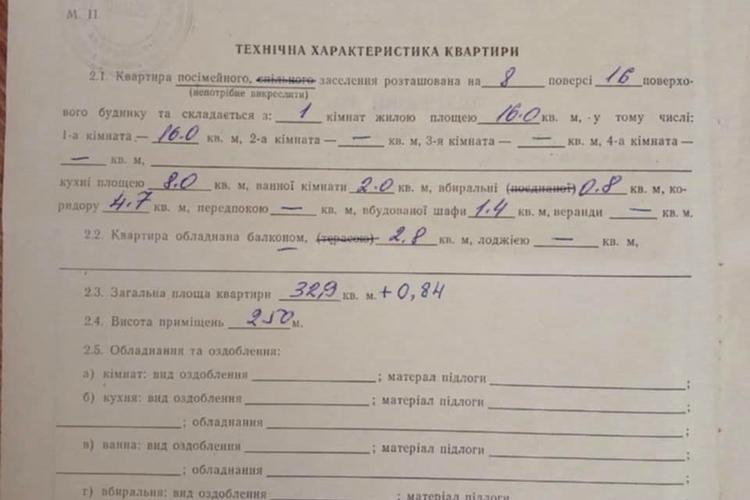 М. П.
ТЕХНІЧНА ХАРАКТЕРИСТИКА КВАРТИРИ
2.1. Квартира посімейного, спільного заселення розташована на 8 поверсі 16 поверхо-
(непотрібне викреслити)
вого будинку та складається з: 1 кімнат жилою площею 16.0 кв. м, у тому числі:
1-а кімната — 16.0 кв. м, 2-а кімната — — кв. м, 3-я кімната — — кв. м, 4-а кімната —
— кв. м,
кухні площею 8.0 кв. м, ванної кімнати 2.0 кв. м, вбиральні (поєднаної) 0.8 кв. м, ко-
ридору 4.7 кв. м, передпокою — кв. м, вбудованої шафи 1.4 кв. м, веранди — кв. м.
2.2. Квартира обладнана балконом, (терасою) 2.8 кв. м, лоджією — кв. м,
2.3. Загальна площа квартири 32,9 кв. м. + 0,84
2.4. Висота приміщень 250 м.
2.5. Обладнання та оздоблення:
а) кімнат: вид оздоблення ; матерал підлоги ;
б) кухня: вид оздоблення ; матеріал підлоги
; обладнання ;
в) ванна: вид оздоблення ; матеріал підлоги ;
; обладнання ;
г) вбиральня: вид оздоблення ; матеріал підлоги